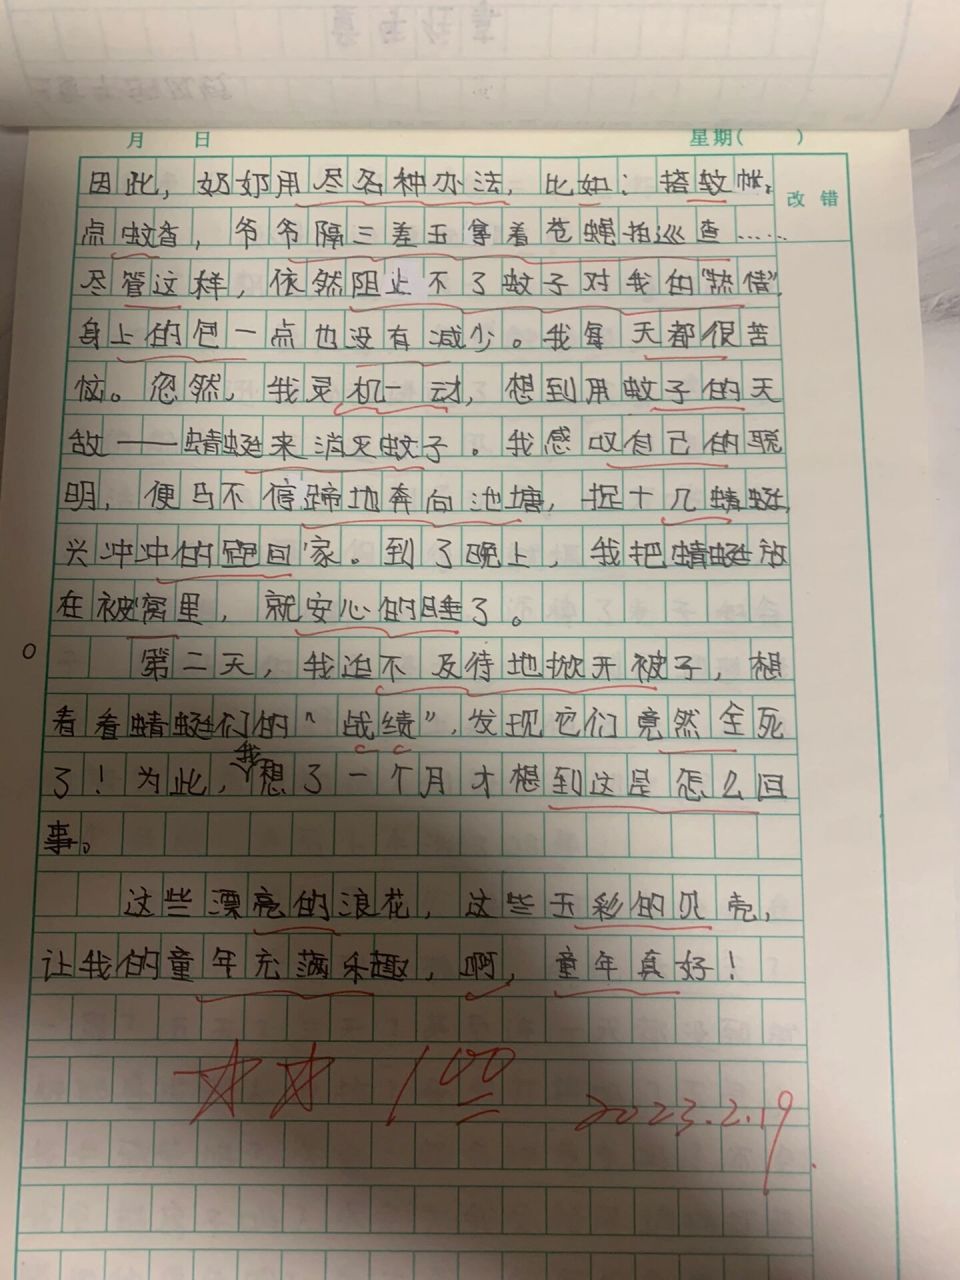 月 日 星期( )
改错
因此，奶奶用尽各种办法，比如：搭蚊帐，
点蚊香，爷爷隔三差五拿着苍蝇拍巡查……
尽管这样，依然阻止不了蚊子对我的“热情”，
身上的包一点也没有减少。我每天都很苦
恼。忽然，我灵机一动，想到用蚊子的天
敌——蜻蜓来消灭蚊子。我感叹自己的聪
明，便马不停蹄地奔向池塘，捉十几蜻蜓，
兴冲冲的跑回家。到了晚上，我把蜻蜓放
在被窝里，就安心的睡了。
第二天，我迫不及待地掀开被子，想
看看蜻蜓们的“战绩”，发现它们竟然全死
了！为此，我想了一个月才想到这是怎么回
事。
这些漂亮的浪花，这些五彩的贝壳，
让我的童年充满乐趣，啊，童年真好！
100 2023.2.19